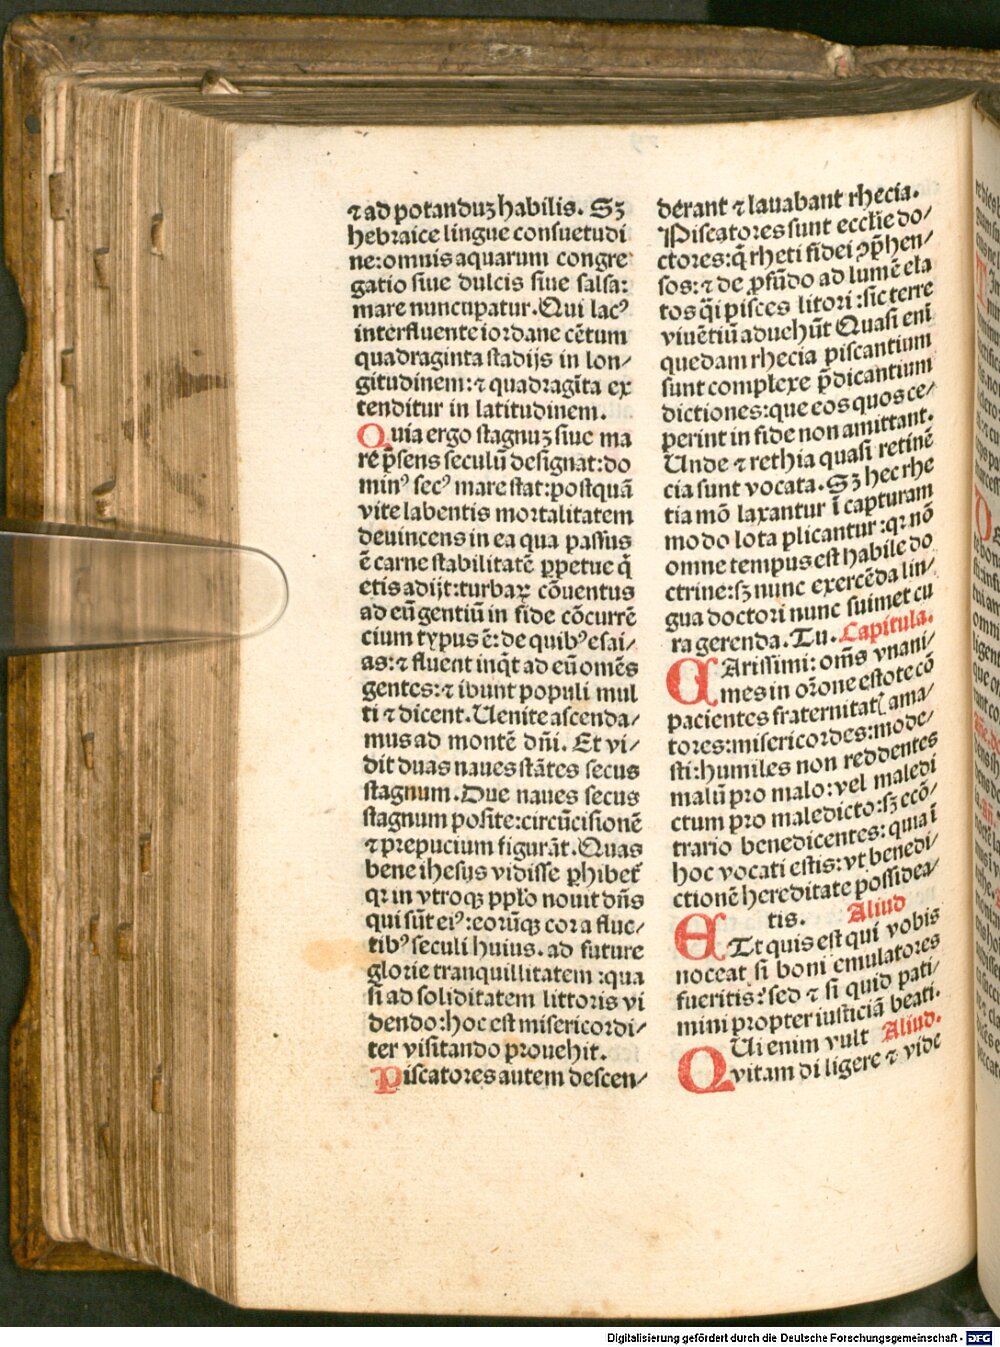 ⁊ ad potanduꝫ habilis. Sꝫ
hebraice lingue consuetudi
ne: omnis aquarum congre
gatio siue dulcis siue salsa:
mare nuncupatur. Qui lacꝰ
interfluente iordane cētum
quadraginta stadijs in lon/
gitudinem: ⁊ quadragīta ex
tenditur in latitudinem.
Quia ergo stagnuꝫ siue ma
re p̄sens seculū designat: do
minꝰ secꝰ mare stat: postquā
vite labentis mortalitatem
deuincens in ea qua passus
ē carne stabilitatē ꝑpetue q̄
etis adijt: turbaꝝ cōuentus
ad eū gentiū in fide cōcurrē
cium typus ē: de quibꝰ esai/
as: ⁊ fluent inq̄t ad eū omēs
gentes: ⁊ ibunt populi mul
ti ⁊ dicent. Uenite ascenda/
mus ad montē dn̄i. Et vi/
dit duas naues stātes secus
stagnum. Due naues secus
stagnum posite: circūcisionē
⁊ prepucium figurāt. Quas
bene ihesus vidisse ꝑhibet᷑
qꝛ in vtroqꝫ ppl̄o nouit dn̄s
qui sūt eiꝰ: eorūqꝫ cor a fluc/
tibꝰ seculi huius. ad future
glorie tranquillitatem: qua
si ad soliditatem littoris vi
dendo: hoc est misericordi/
ter visitando prouehit.
Piscatores autem descen/
derant ⁊ lauabant rhecia.
Piscatores sunt eccl̄ie do/
ctores: q̄ rheti fidei ꝯp̄hen/
sos: ⁊ de ꝓfūdo ad lumē ela
tos q̄i pisces litori: sic terre
viuētiū aduehūt Quasi enī
quedam rhecia piscantium
sunt complexe p̄dicantium
dictiones: que eos quos ce/
perint in fide non amittant.
Unde ⁊ rethia quasi retinē
cia sunt vocata. Sꝫ hec rhe
tia mō laxantur ī capturam
modo lota plicantur: qꝛ nō
omne tempus est habile do
ctrine: sꝫ nunc exercēda lin/
gua doctori nunc suimet cu
ra gerenda. Tu. Capitula.
CArissimi: om̄s vnani/
mes in or̄one estote cō
pacientes fraternitatꝭ ama/
tores: misericordes: mode/
sti: humiles non reddentes
malū pro malo: vel maledi
ctum pro maledicto: sꝫ ecō/
trario benedicentes: quia ī
hoc vocati estis: vt benedi/
ctionē hereditate possidea/
tis. Aliud
ETt quis est qui vobis
noceat si boni emulatores
fueritis? sed ⁊ si quid pati/
mini propter iusticiā beati.
QUi enim vult Aliud.
vitam diligere ⁊ vide
Digitalisierung gefördert durch die Deutsche Forschungsgemeinschaft - DFG